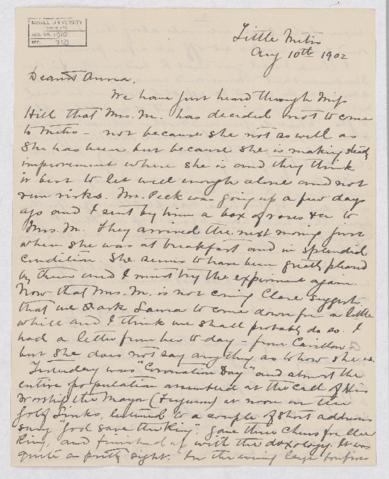 McGILL UNIVERSITY
ACC. NO. 1910
REF. 710
Little Metis
Aug 10th 1902
Dearest Anna.
We have just heard through Miss
Hill that Mrs. M. has decided not to come
to Metis - not because she not as well as
she has been but because she is making steady
improvement where she is and they think
it best to let well enough alone and not
run risks. Mr. Peck was going up a few days
ago and I sent by him a box of roses &c to
Mrs. M. They arrived the next morning just
when she was at breakfast and in splendid
condition. She seems to have been greatly pleased
by them and I must try the experiment again.
Now that Mrs. M. is not coming Clare suggests
that we ask Lama to come down for a little
while and I think we shall probably do so. I
had a letter from her to day - from Carillon
but she does not say anything as to how she is.
Yesterday was "Coronation Day" and almost the
entire population assembled at the call of His
Worship the Mayor (Ferguson) at noon on the
Golf Links, listened to a couple of short addresses
sang "God save the King" gave three cheers for the
King, and finished up with the doxology. It was
quite a pretty sight. In the evening large bonfires